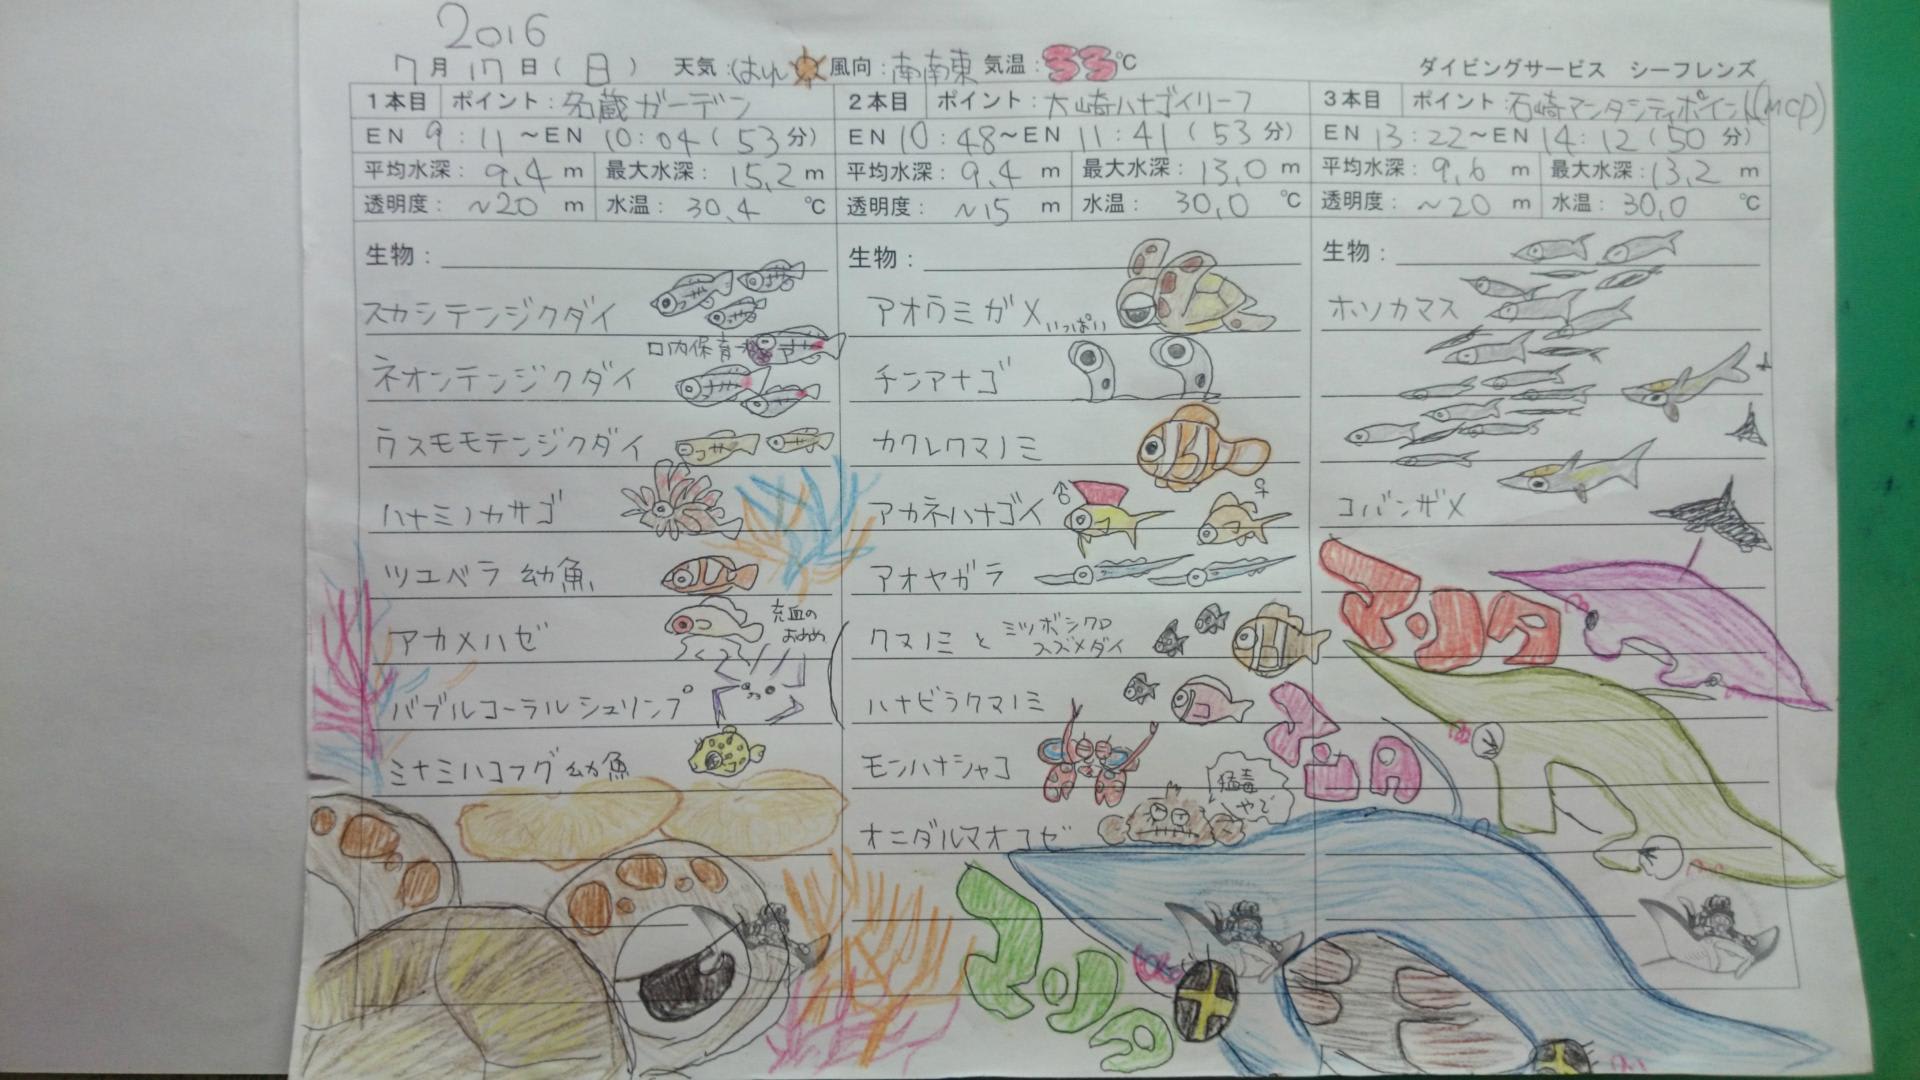 2016
7月17日(日) 天気:はれ 風向:南南東 気温:33℃ ダイビングサービス シーフレンズ
1本目 ポイント:名蔵ガーデン
EN 9:11~EN 10:04(53分)
平均水深:9.4m 最大水深:15.2m
透明度:~20m 水温:30.4℃
生物:
スカシテンジクダイ
口内保育
ネオンテンジクダイ
ウスモモテンジクダイ
ハナミノカサゴ
ツユベラ 幼魚
アカメハゼ
充血の
おめめ
バブルコーラルシュリンプ
ミナミハコフグ 幼魚
2本目 ポイント:大崎ハナゴイリーフ
EN 10:48~EN 11:41(53分)
平均水深:9.4m 最大水深:13.0m
透明度:~15m 水温:30.0℃
生物:
アオウミガメいっぱい
チンアナゴ
カクレクマノミ
アカネハナゴイ ♂ ♀
アオヤガラ
クマノミ と ミツボシクロ
スズメダイ
ハナビラクマノミ
モンハナシャコ
猛毒
やで
オニダルマオコゼ
マンタ
3本目 ポイント:石崎マンタシティポイント(MCP)
EN 13:22~EN 14:12(50分)
平均水深:9.6m 最大水深:13.2m
透明度:~20m 水温:30.0℃
生物:
ホソカマス
コバンザメ
マンタ
マンタ